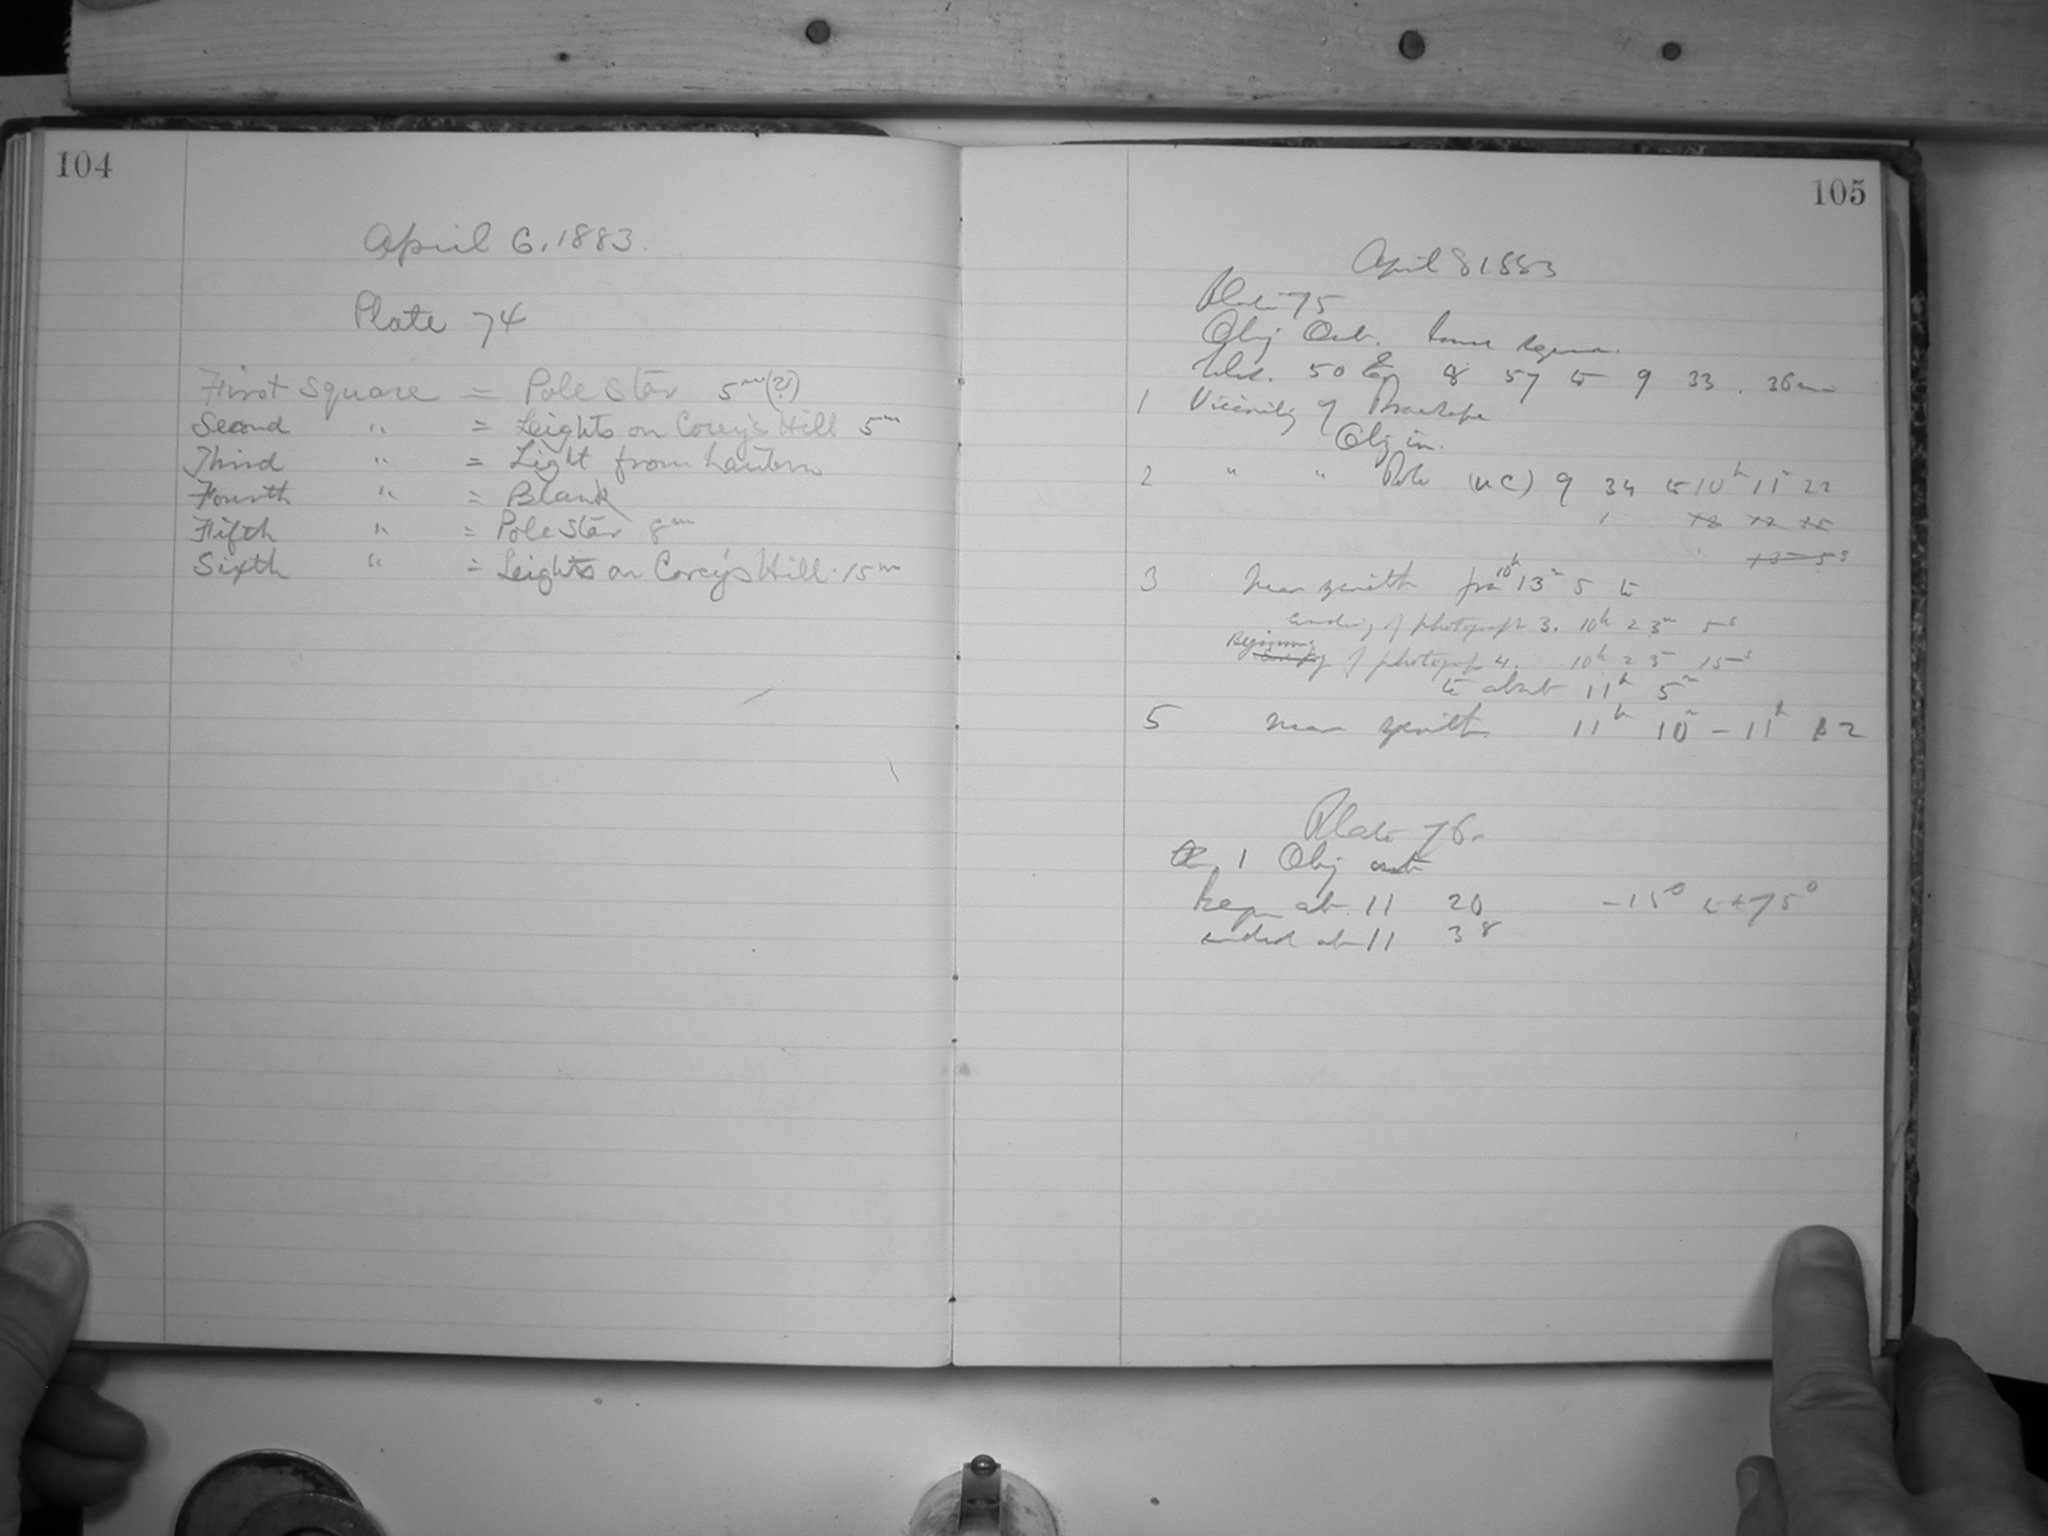 104
April 6, 1883.
Plate 74
First Square = Pole Star 5m(?)
Second " = Leights on Corey's Hill 5m
Third " = Light from Lantern
Fourth " = Blank
Fifth " = Pole Star 8m
Sixth " = Leights on Corey's Hill. 15m
105
April 8 1883
Plate 75
Obj Out. Same
50 8 57 to 9 33. 36m
1 Vicinity of Praesepe
Obj in.
2 " " Pole (UC) 9 34 to 10h 11m 22
3 Near zenith from 10h 13m 5 to
Ending of photograph 3. 10h 23m 5s
Beginning of photograph 4. 10h 23m 15s
to about 11h 5m
5 near zenith 11h 10m - 11h 12
Plate 76.
1 Obj out
began at 11 20 -15° to +75°
ended at 11 38